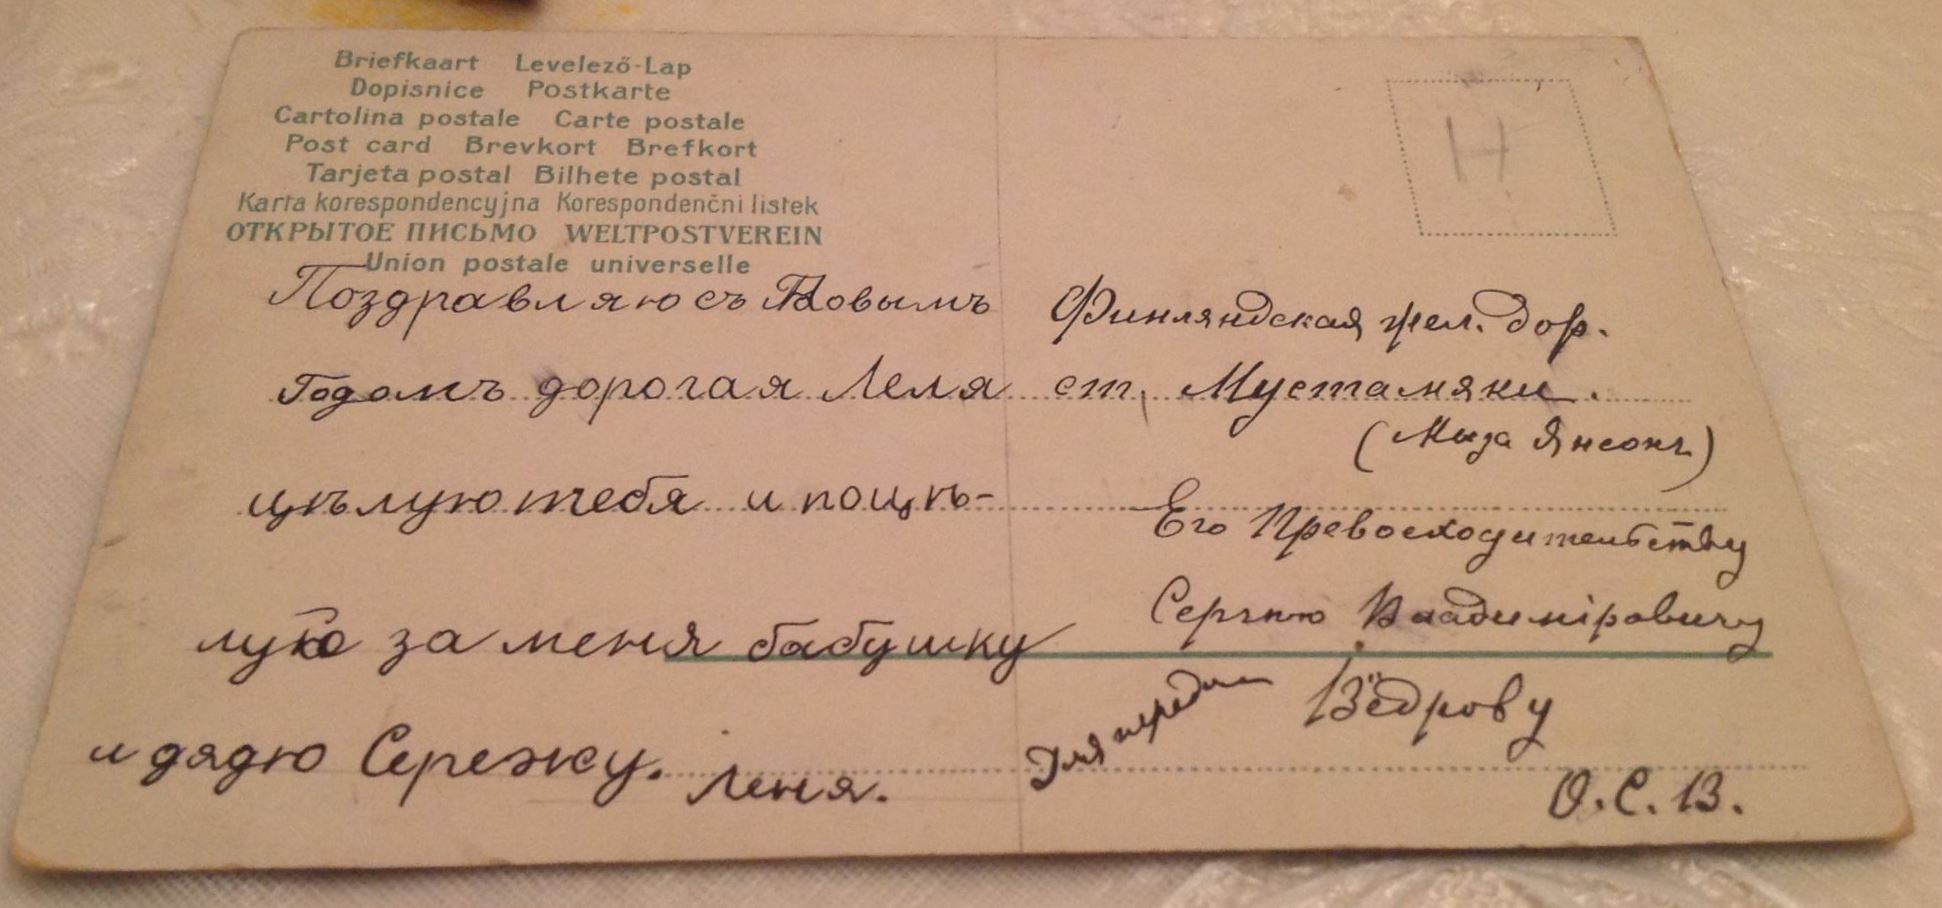 Briefkaart Levelező-Lap
Dopisnice Postkarte
Cartolina postale Carte postale
Post card Brevkort Brefkort
Tarjeta postal Bilhete postal
Karta korespondencyjna Korespondenčni listek
ОТКРЫТОЕ ПИСЬМО WELTPOSTVEREIN
Union postale universelle
Поздравляю съ Новымъ
Годомъ дорогая Леля
цѣлую тебя и поцѣ-
лую за меня бабушку
и дядю Сережу.
Леня.
Н
Финляндская жел. дор.
ст. Мустамяки.
(Мыза Янсонъ)
Его Превосходительству
Сергѣю Владиміровичу
Вёдрову
Для передачи
О. С. В.